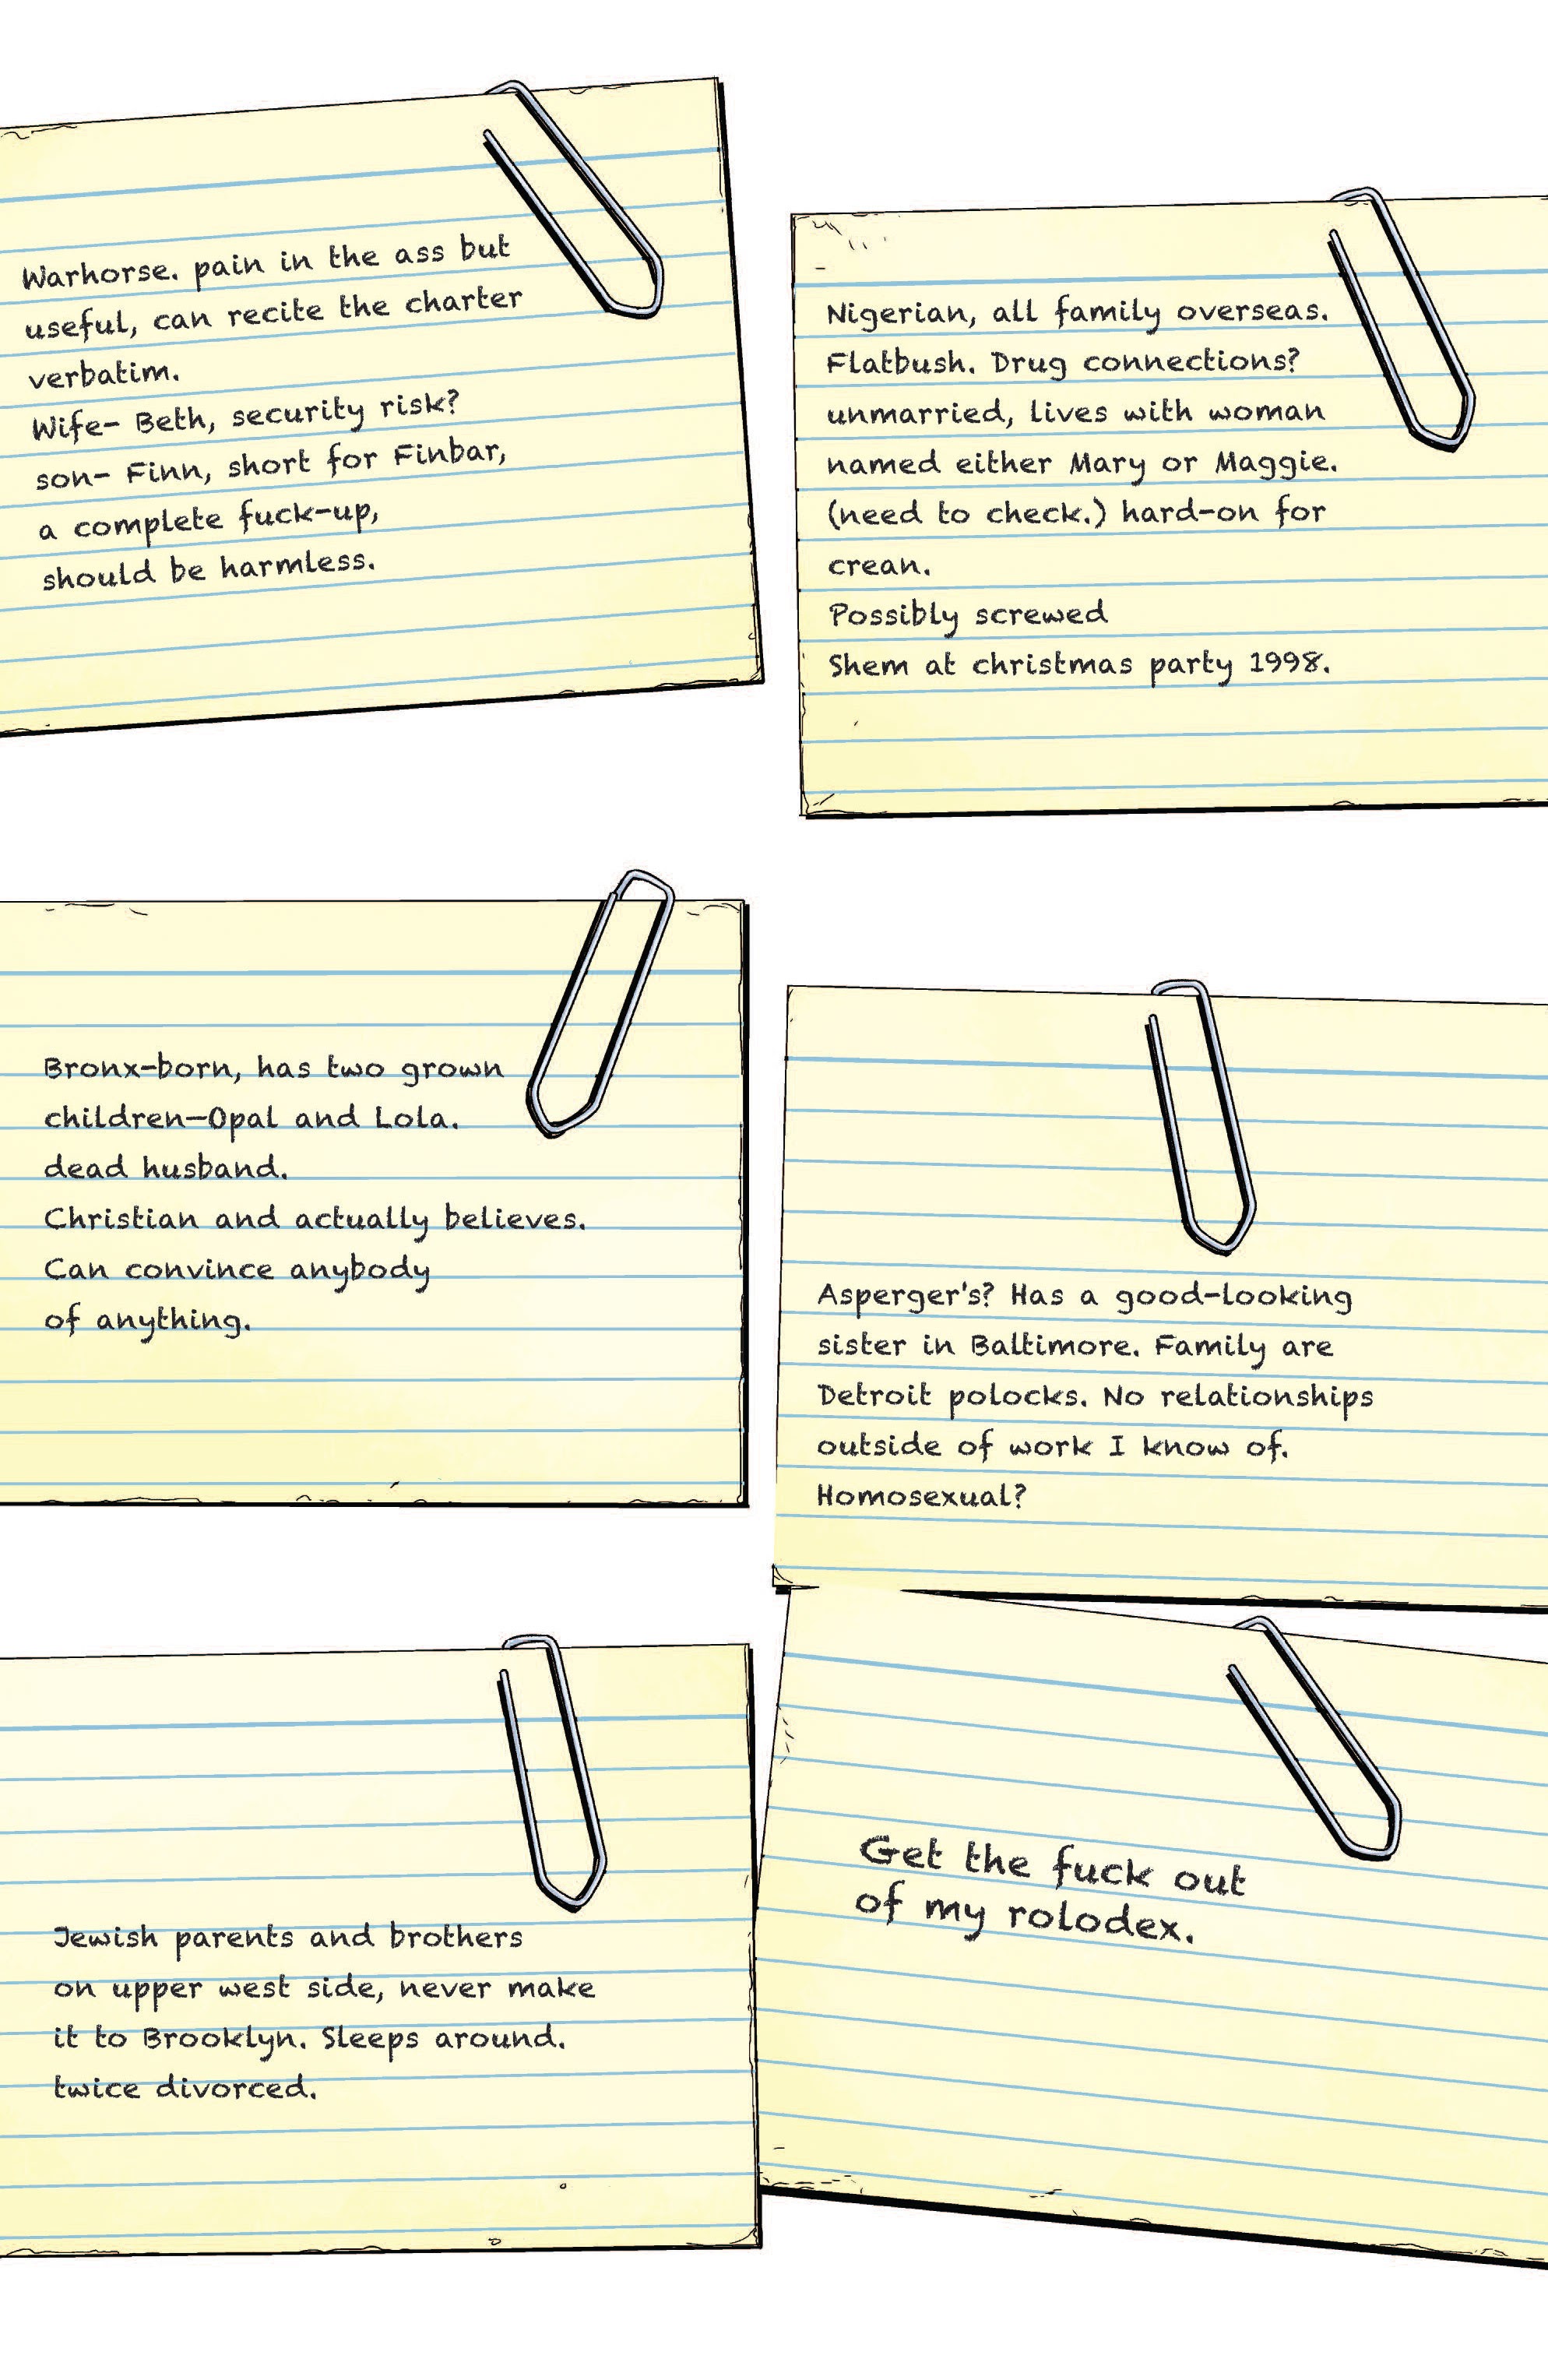 Warhorse. pain in the ass but
useful, can recite the charter
verbatim.
Wife- Beth, security risk?
son- Finn, short for Finbar,
a complete fuck-up,
should be harmless.
Nigerian, all family overseas.
Flatbush. Drug connections?
unmarried, lives with woman
named either Mary or Maggie.
(need to check.) hard-on for
crean.
Possibly screwed
Shem at christmas party 1998.
Bronx-born, has two grown
children—Opal and Lola.
dead husband.
Christian and actually believes.
Can convince anybody
of anything.
Asperger's? Has a good-looking
sister in Baltimore. Family are
Detroit polocks. No relationships
outside of work I know of.
Homosexual?
Jewish parents and brothers
on upper west side, never make
it to Brooklyn. Sleeps around.
twice divorced.
Get the fuck out
of my rolodex.